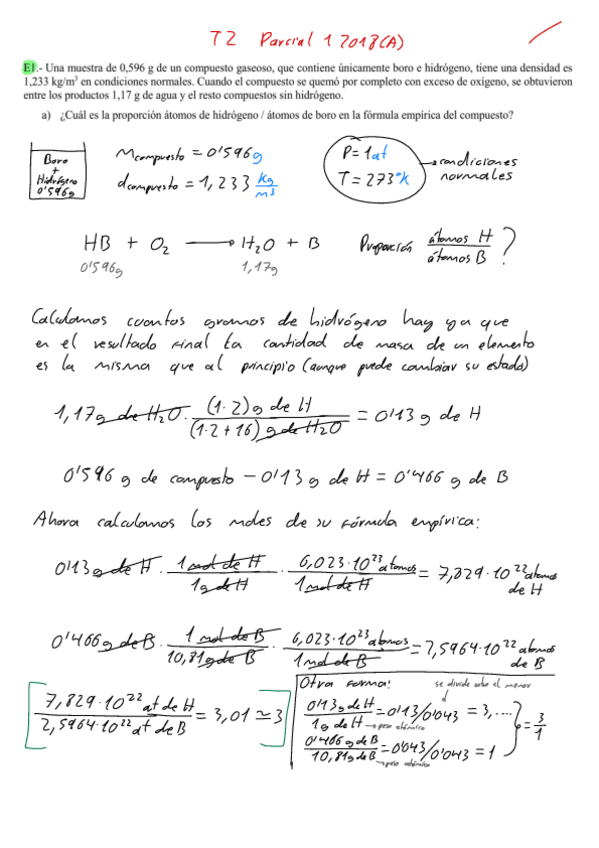 T2 Parcial 1 2018(A)
E1.- Una muestra de 0,596 g de un compuesto gaseoso, que contiene únicamente boro e hidrógeno, tiene una densidad es
1,233 kg/m³ en condiciones normales. Cuando el compuesto se quemó por completo con exceso de oxígeno, se obtuvieron
entre los productos 1,17 g de agua y el resto compuestos sin hidrógeno.
a) ¿Cuál es la proporción átomos de hidrógeno / átomos de boro en la fórmula empírica del compuesto?
Boro
+
Hidrógeno
0'596g
Mcompuesto = 0'596g
dcompuesto = 1,233 kg/m³
P = 1at
T = 273°K
condiciones
normales
HB + O₂ → H₂O + B
0'596g 1,17g
Proporción átomos H / átomos B ?
Calculamos cuantos gramos de hidrógeno hay ya que
en el resultado final la cantidad de masa de un elemento
es la misma que al principio (aunque puede cambiar su estado)
1,17g de H₂O · (1·2)g de H / (1·2+16)g de H₂O = 0'13 g de H
0'596 g de compuesto − 0'13 g de H = 0'466 g de B
Ahora calculamos los moles de su fórmula empírica:
0'13g de H · 1 mol de H / 1g de H · 6,023·10²³ atomos / 1 mol de H = 7,829·10²² atomos de H
0'466g de B · 1 mol de B / 10,81g de B · 6,023·10²³ atomos / 1 mol de B = 2,5964·10²² atomos de B
7,829·10²² at de H / 2,5964·10²² at de B = 3,01 ≃ 3
Otra forma: se divide entre el menor
0'13g de H / 1g de H = 0'13/0'043 = 3,....
→ peso atómico
0'466g de B / 10,81g de B = 0'043/0'043 = 1
→ peso atómico
= 3/1